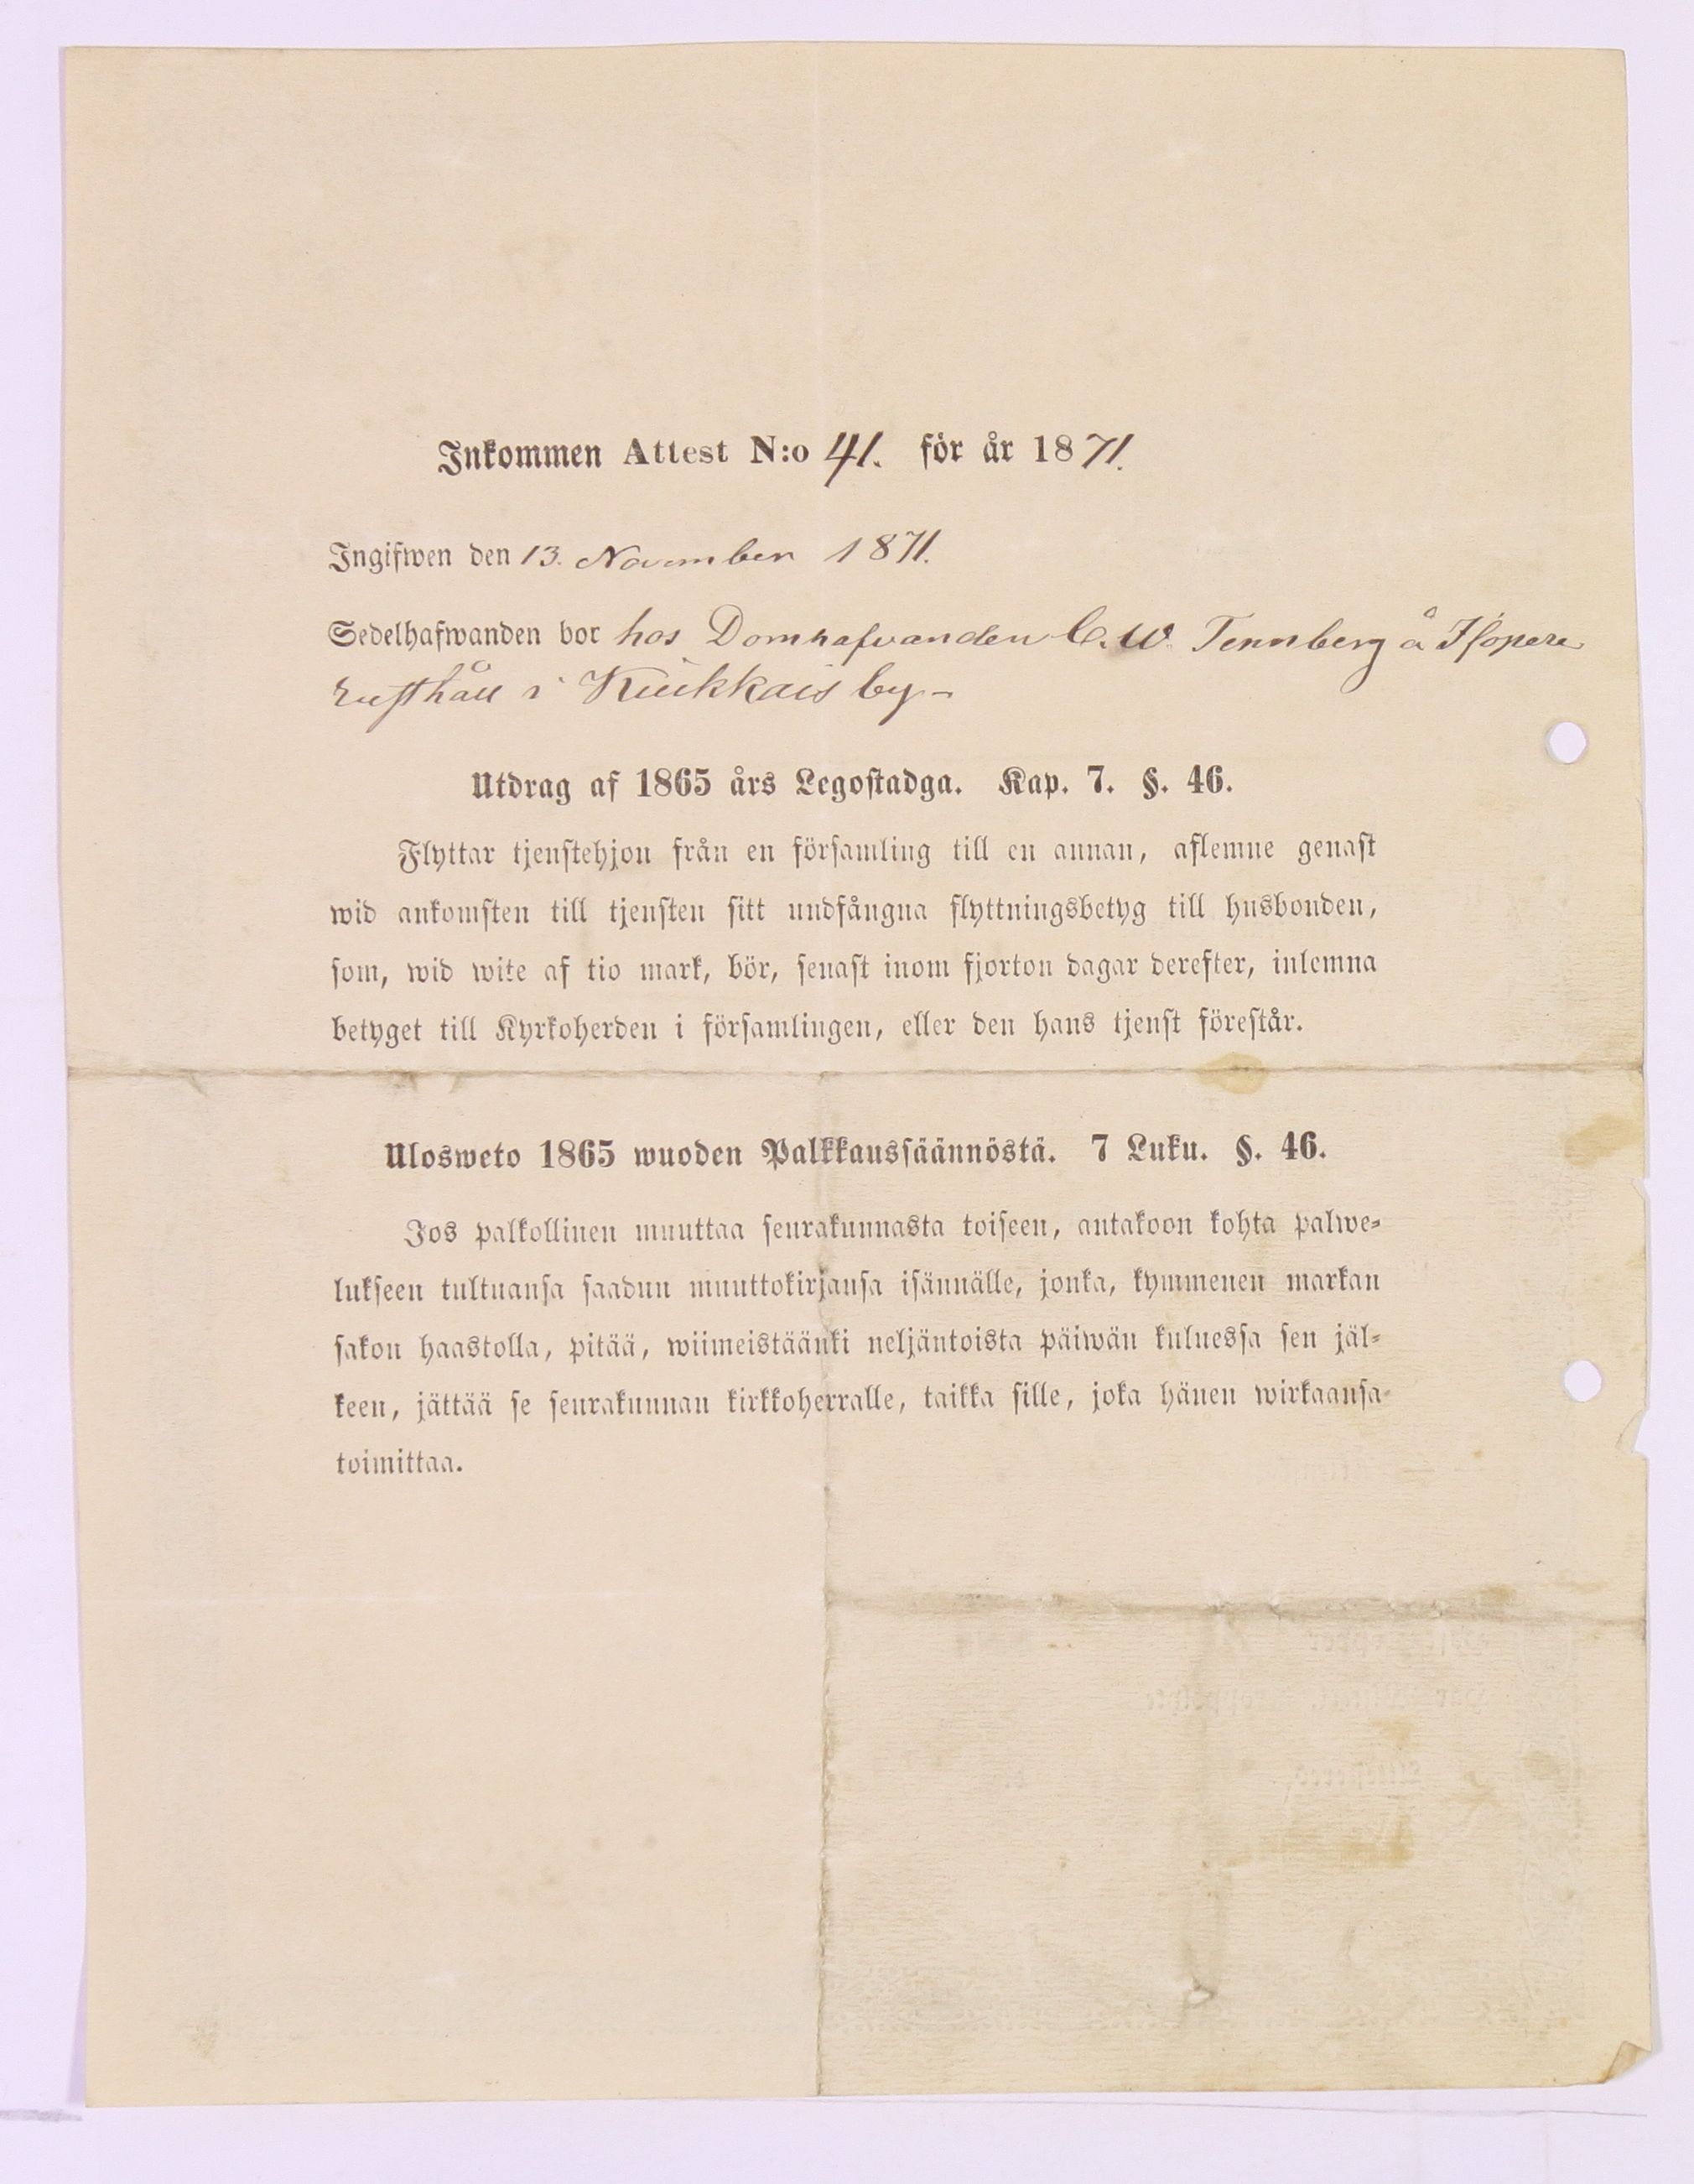 Inkommen Attest N:o 41. för år 1871.
Ingifwen den 13. November 1871.
Sedelhafwanden bor hos Domhafvanden C. W. Tennberg å Isopere
Rusthåll i Kuikkais by-
Utdrag af 1865 års Legostadga. Kap. 7. §. 46.
Flyttar tjenstehjon från en församling till en annan, aflemne genast
wid ankomsten till tjensten sitt undfångna flyttningsbetyg till husbonden,
som, wid wite af tio mark, bör, senast inom fjorton dagar derefter, inlemna
betyget till Kyrkoherden i församlingen, eller den hans tjenst förestår.
Ulosweto 1865 wuoden Palkkaussäännöstä. 7 Luku. §. 46.
Jos palkollinen muuttaa seurakunnasta toiseen, antakoon kohta palwe-
lukseen tultuansa saadun muuttokirjansa isännälle, jonka, kymmenen markan
sakon haastolla, pitää, wiimeistäänki neljäntoista päiwän kuluessa sen jäl-
keen, jättää se seurakunnan kirkkoherralle, taikka sille, joka hänen wirkaansa
toimittaa.